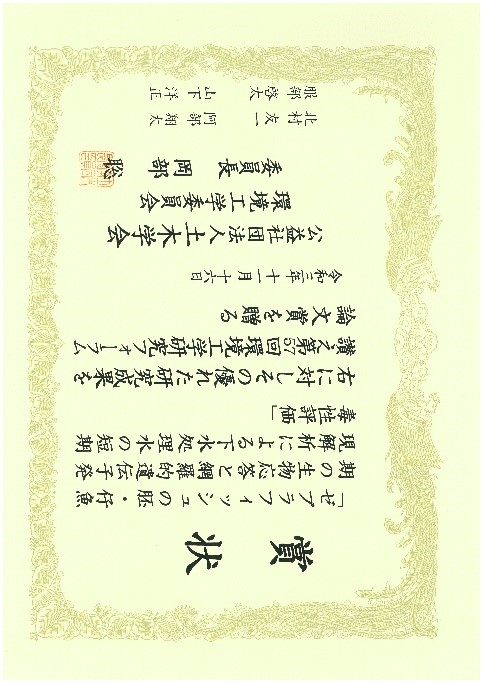 賞状
「ゼブラフィッシュの胚・仔魚
期の生物応答と網羅的遺伝子発
現解析による下水処理水の短期
毒性評価」
右に対しその優れた研究成果を
讃え第57回環境工学研究フォーラム
論文賞を贈る
令和三年十一月十六日
公益社団法人土木学会
環境工学委員会
委員長 岡部 聡
北村友一 阿部翔太
服部啓太 山下洋正